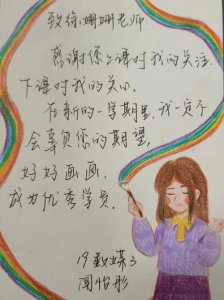 致徐姗姗老师
感谢您上课对我的关注,
下课对我的关心。
在新的一学期里,我一定不
会辜负您的期望,
好好画画,
成为优秀学员.
19数媒3
闻怡彤